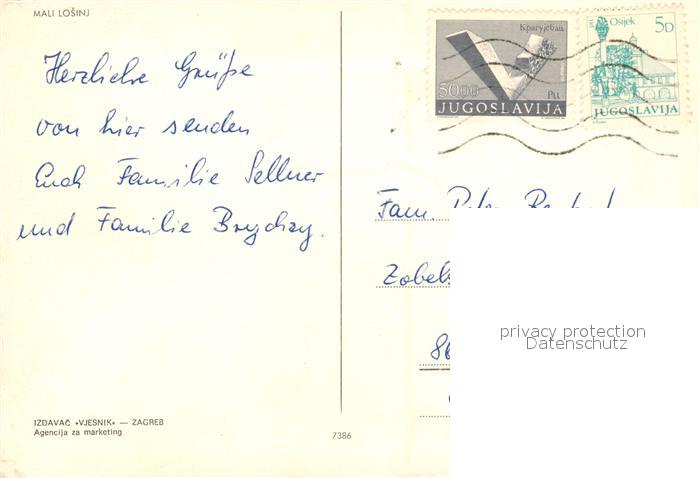 MALI LOŠINJ
Herzliche Grüße
von hier senden
Euch Familie Sellner
und Familie
Крагујевац
5000 Pu
JUGOSLAVIJA
Osijek 5D
JUGOSLAVIJA
Fam. Peter
86
privacy protection
Datenschutz
IZDAVAČ »VJESNIK« — ZAGREB
Agencija za marketing
7386